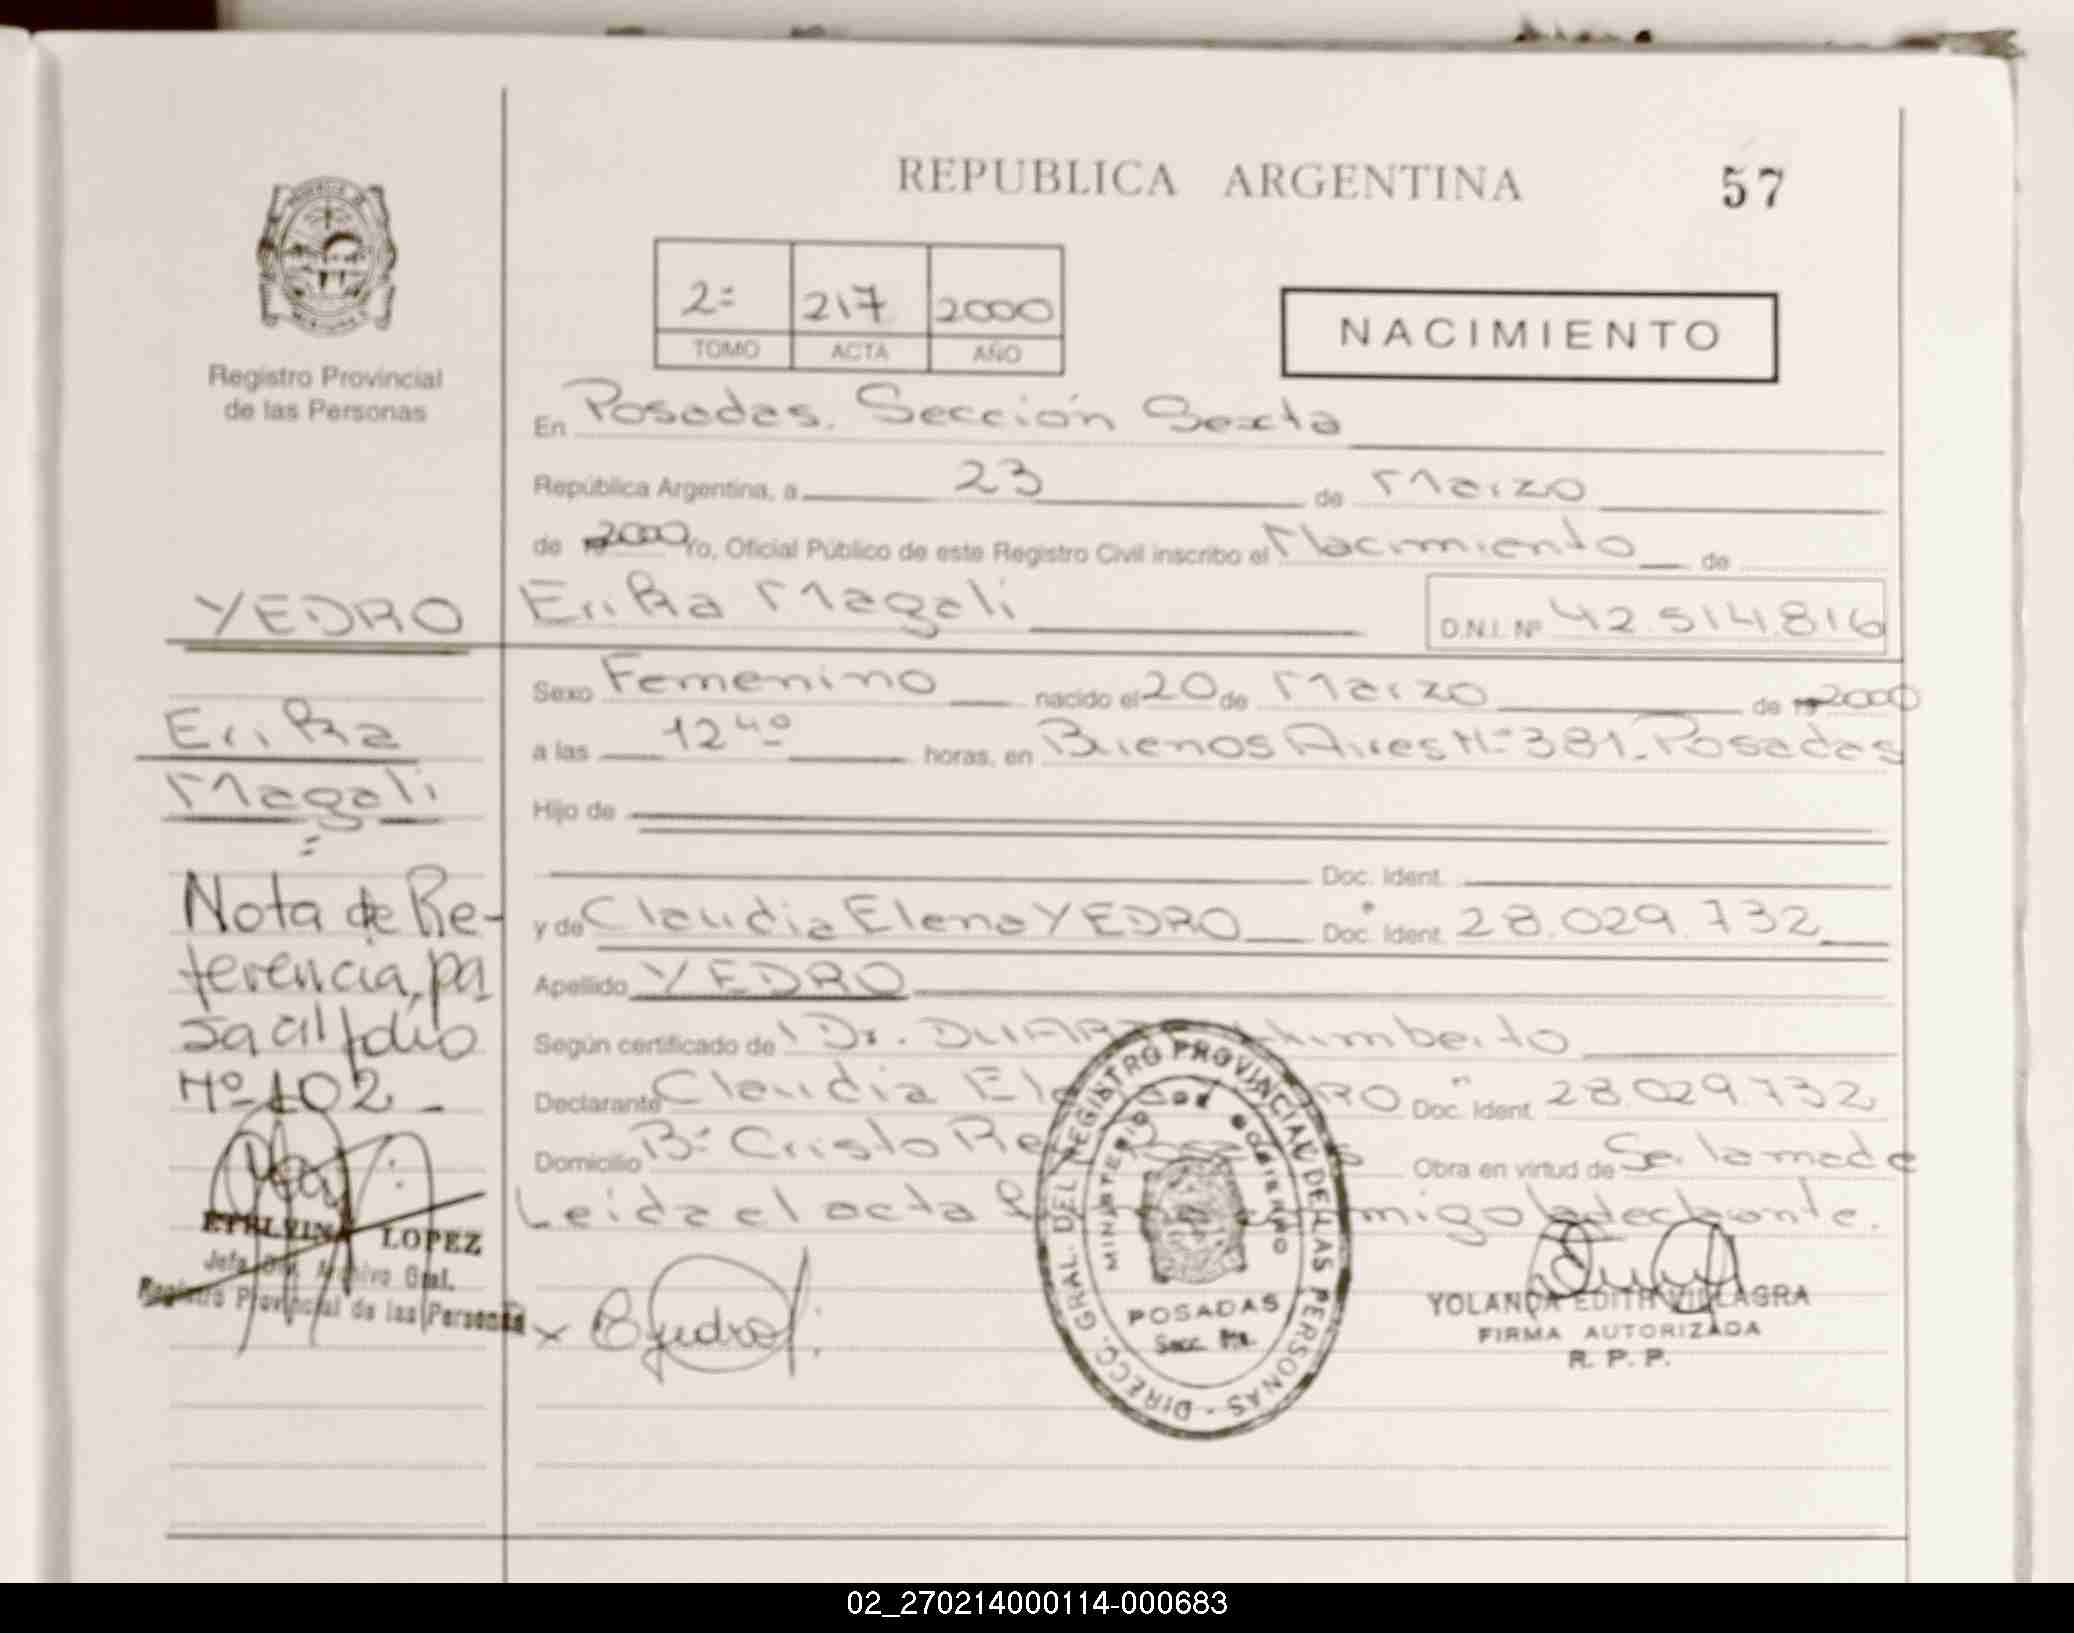 REPUBLICA ARGENTINA
57
2= 217 2000
TOMO ACTA AÑO
NACIMIENTO
Registro Provincial
de las Personas
En Posadas. Sección Sexta
República Argentina, a 23 de Marzo
de 2000 Yo, Oficial Público de este Registro Civil inscribo el Nacimiento de
YEDRO Erika Magali D.N.I. Nº 42.514.816
Sexo Femenino nacido el 20 de Marzo de 2000
Erika
a las 12 40 horas, en Buenos Aires Nº 381. Posadas
Magali
Hijo de
Doc. Ident.
Nota de Re-
y de Claudia Elena YEDRO Doc. Ident. 28.029.732
ferencia, pa
Apellido YEDRO
sa al folio
Según certificado de Dr. Humberto
Nº 102 -
Declarante Claudia Doc. Ident. 28.029.732
Domicilio Bº Cristo Obra en virtud de Ser la madre
Leida el acta conmigo la declarante.
ETELVINA LOPEZ
Jefa Archivo Gral.
Registro Provincial de las Personas
x
DIRECC. GRAL. DEL REGISTRO PROVINCIAL DE LAS PERSONAS -
MINISTERIO DE GOBIERNO
POSADAS
Secc.
YOLANDA EDITH VILLAGRA
FIRMA AUTORIZADA
R. P. P.
02_270214000114-000683